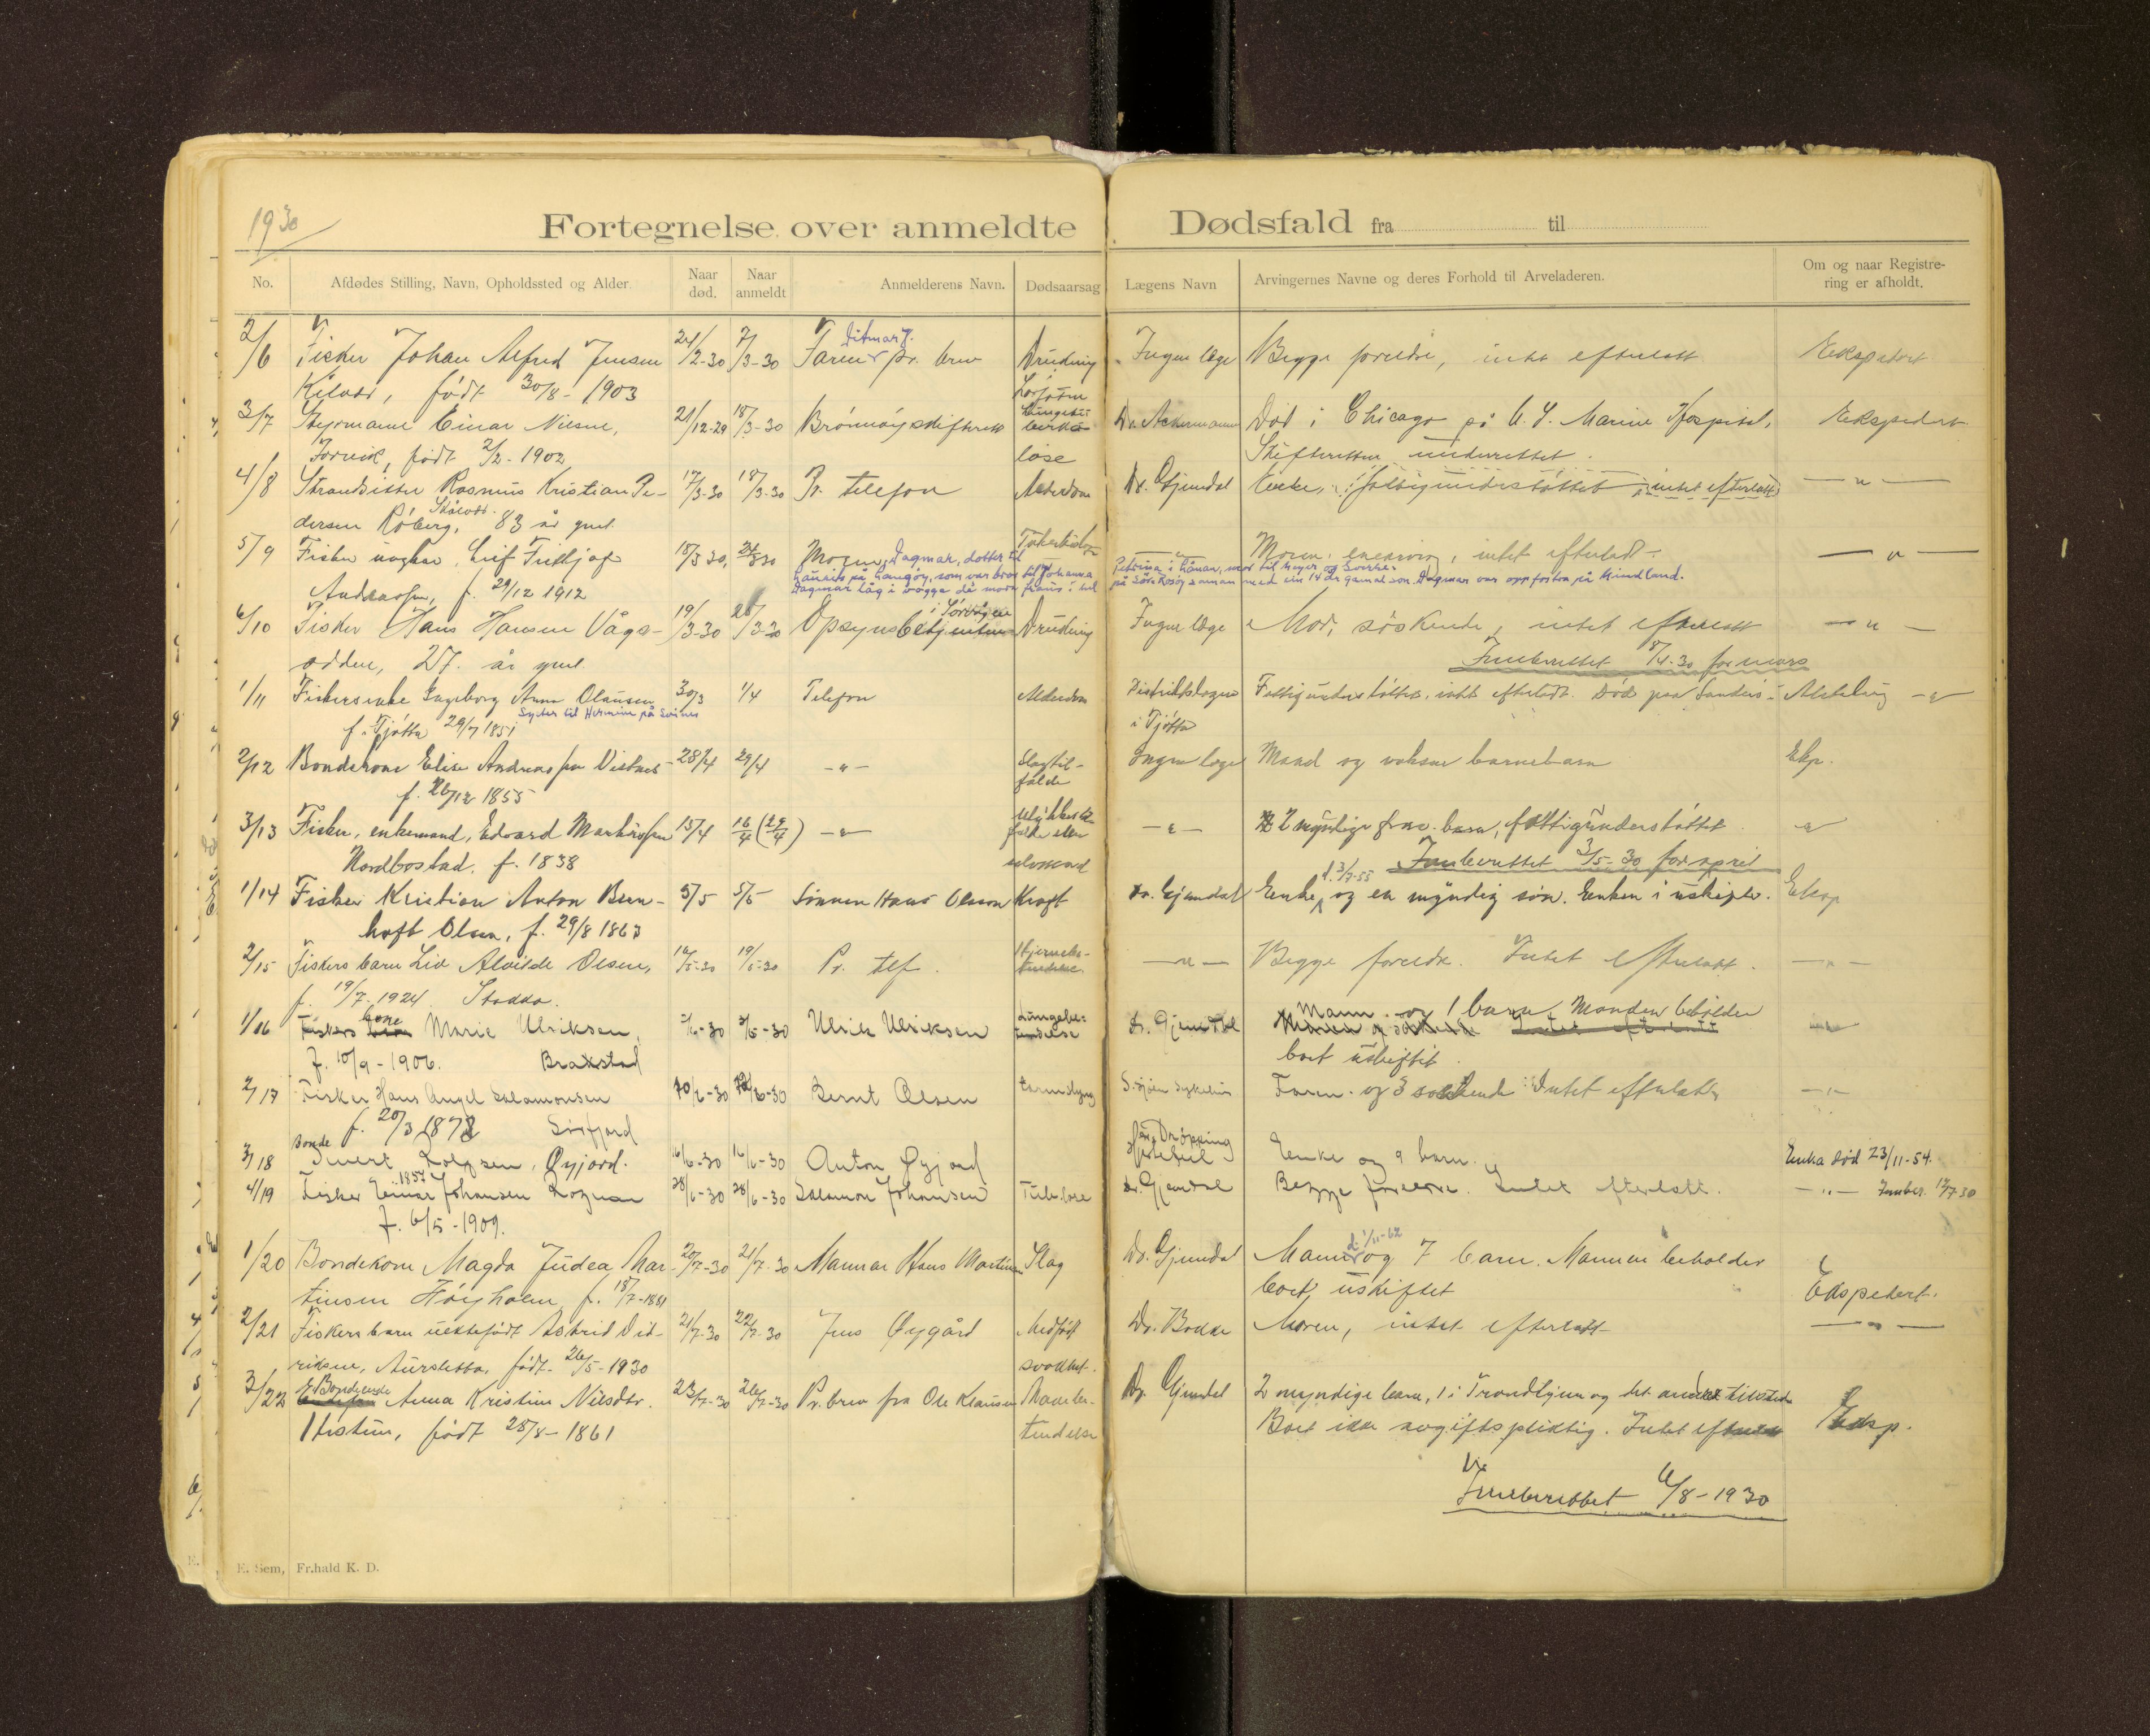 1930
Fortegnelse over anmeldte Dødsfald fra til
No. Afdødes Stilling, Navn, Opholdssted og Alder. Naar død. Naar anmeldt Anmelderens Navn. Dødsaarsag Lægens Navn Arvingernes Navne og deres Forhold til Arveladeren. Om og naar Registrering er afholdt.
Ditmar J.
2/6 Fisker Johan Alfred Jensen 24/2-30 7/3-30 Faren pr. brev Drukning Ingen læge Begge foreldre, intet efterlatt Ekspedert
født 30/8-1903
3/7 Styrmann Einar Nilsen, 21/12-29 18/3-30 Brønnøy skifterett Dr. Ackermann Død i Chicago på U.S. Marine Hospital,
Forvik, født 2/2-1902 løse Skifteretten underrettet.
4/8 Rasmus Kristian Pe- 17/3-30 18/3-30 Pr. telefon Alderdom Dr. Gjendal Enke, fattigunderstøttet, intet efterlatt — " —
dersen Røberg, 83 år gml.
5/9 Fisker ungkar Leif Fritljof 18/3 30, Moren, Dagmar, dotter til — " — Moren enearving, intet efterlatt. — " —
på Langøy, som var bror til Johanna Petrina i Lånan, mor til Meyer og Sverre.
Dagmar låg i vogga då mora på Sør-Rosøy saman med ein 14 år gamal son. Dagmar var oppfostra på Mindland.
Andreassen, f. 29/12 1912
6/10 Fisker Hans Hansen Våg- 19/3-30 Opsynsbetjenten Drukning Ingen læge Mor, søskende, intet efterlatt — " —
odden, 27 år gml.
Innberettet 8/4-30 for mars
1/11 Fiskerenke Ingeborg Anna Olausen 30/3 1/4 Telefon Alderdom Distriktslægen Fattigunderstøttet, intet efterladt. Død paa Sandnes- — " —
Syster til Hermine på
f. Tjøtta 29/7 1851 i Tjøtta
2/12 Bondekone Elise Andreassen Vistnes 28/4 29/4 — " — Slagtil- Ingen læge Mand og voksne barnebarn Eksp.
f. 26/12 1855 fælde
3/13 Fisker, enkemand, Edvard 15/4 16/4 (29/4) — " — — " — 2 myndige barn, fattigunderstøttet. "
Nordbostad. f. 1838
Innberettet 3/5-30 for april
d. 3/7-55
1/14 Fisker Kristian Anton Bern- 5/5 5/5 Sønnen Hans Olsson Kræft Dr. Gjendal Enke, og en myndig søn. Enken i uskifte. Eksp
hoft Olsen, f. 29/8 1863
2/15 Fiskers barn Liv Alvilde Olsen, 16/5-30 19/5-30 Pr. tlf. Hjernebe- — " — Begge foreldre. Intet efterlatt. — " —
f. 19/7-1924 Stokka. tendelse.
1/16 Fiskers kone Marie Ulriksen, Ulrik Ulriksen Lungebe- Dr. Gjendal Mann og 1 barn. Manden beholder
tendelse
f. 10/9-1906. Braxstad boet uskiftet.
2/17 Fisker Hans Angel Salamonsen 10/6-30 Bernt Olsen Faren og 3 søskende. Intet efterlatt. — " —
f. 20/3 1878
3/18 Bonde Øyjord. 16/6-30 16/6-30 Anton Øyjord Enke og 9 barn. Enka død 23/11-54.
1857
4/19 Fisker Einar Johansen 28/6-30 28/6-30 Salamon Johansen Dr. Gjendal Begge foreldre. Intet efterlatt. — " — Innber. 12/7 30
f. 6/5-1909.
d. 1/11-62
1/20 Bondekone Magda Judea Mar- 20/7-30 21/7-30 Mannen Hans Martinsen Slag Dr. Gjendal Mann og 7 barn. Mannen beholder
tinsen Høyholm, f. 18/7-1881 boet uskiftet Ekspedert.
2/21 Fiskers barn uektefødt Astrid Did- 21/7-30 22/7-30 Jens Øygård Medfødt Dr. Bokke Moren, intet efterlatt — " —
riksen, Aursletta, født 26/5-1930 svakhet.
3/22 Bondeenke Anna Kristine Nilsdtr. 23/7-30 26/7-30 Pr. brev fra Ole Klausen Mavebe- Dr. Gjendal 2 myndige barn, 1 i Trondhjem og det andre tilstede
tendelse Boet ikke avgiftspliktig. Intet efterlatt Eksp.
født 28/8-1861
Innberettet 6/8-1930
E. Sem, Fr.hald K. D.